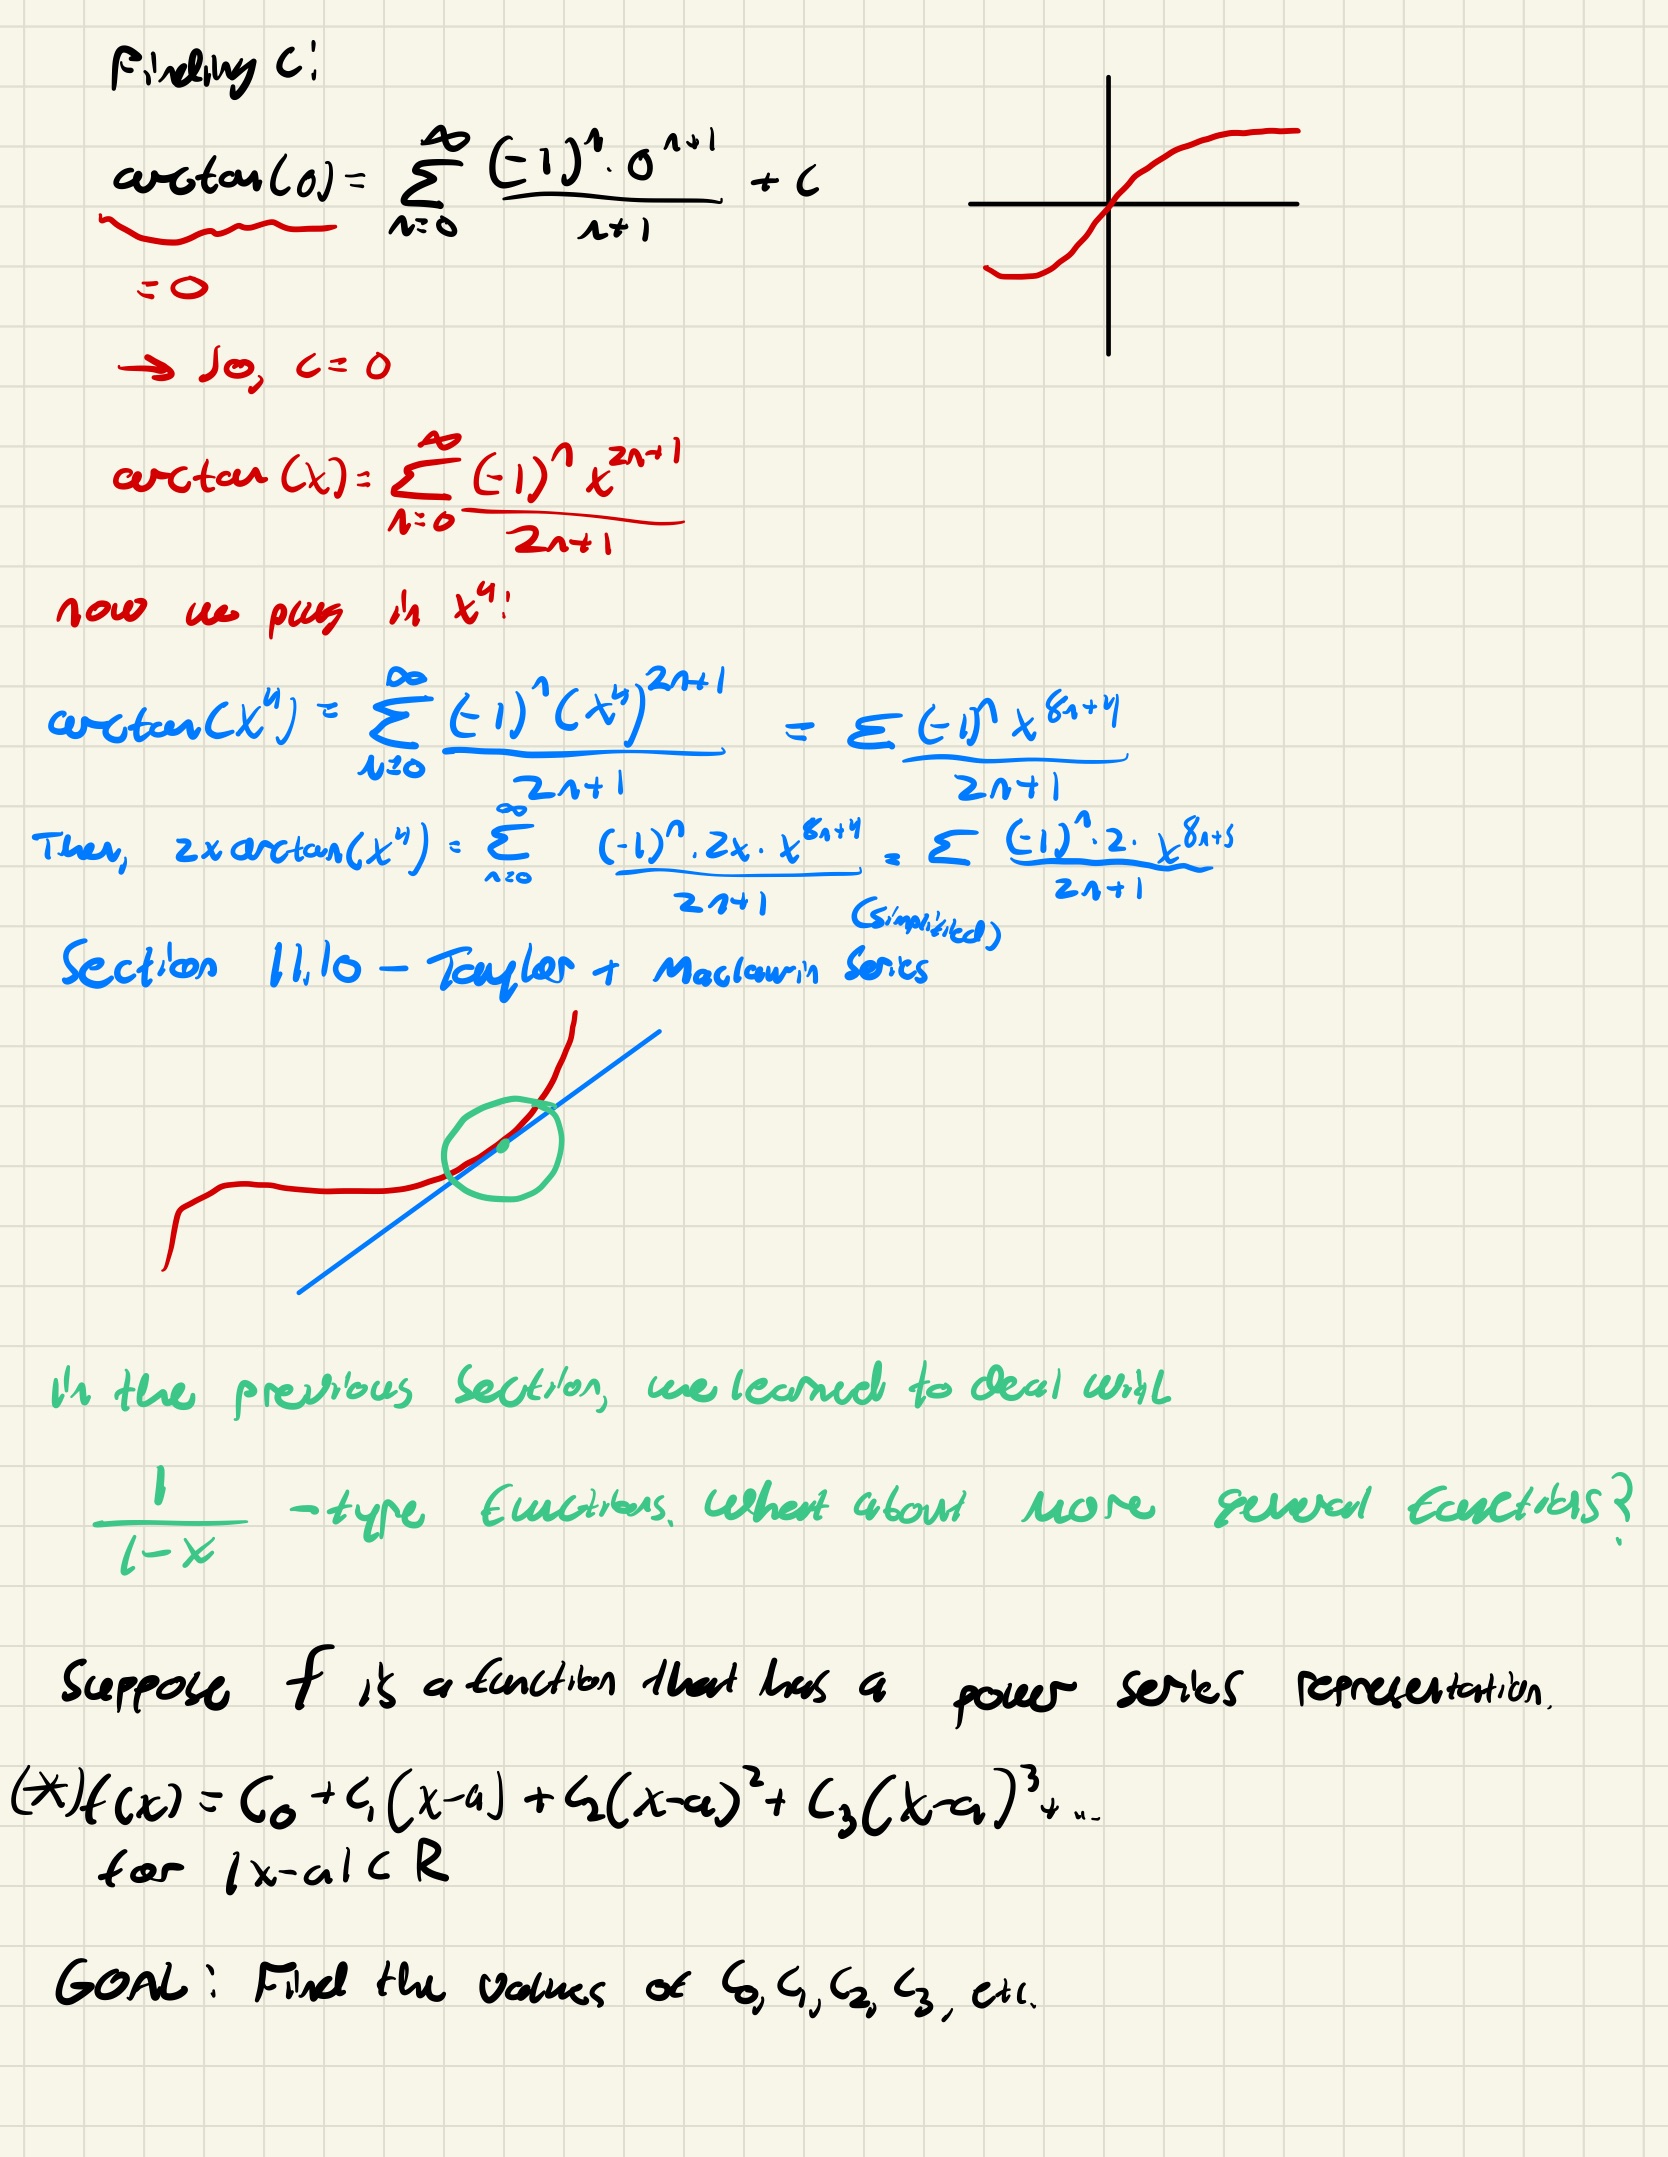 Finding C:
arctan(0) = ∞∑n=0 (-1)^n · 0^(n+1) / n+1 + C
= 0
→ so, C = 0
arctan(x) = ∞∑n=0 (-1)^n x^(2n+1) / 2n+1
now we plug in x^4:
arctan(x^4) = ∞∑n=0 (-1)^n (x^4)^(2n+1) / 2n+1 = ∑ (-1)^n x^(8n+4) / 2n+1
Then, 2x arctan(x^4) = ∞∑n=0 (-1)^n · 2x · x^(8n+4) / 2n+1 = ∑ (-1)^n · 2 · x^(8n+5) / 2n+1
(simplified)
Section 11.10 - Taylor + Maclaurin Series
in the previous section, we learned to deal with
1 / 1-x -type functions. What about more general functions?
Suppose f is a function that has a power series representation.
(*) f(x) = C₀ + C₁(x-a) + C₂(x-a)² + C₃(x-a)³ + ...
for |x-a| < R
GOAL: Find the values of C₀, C₁, C₂, C₃, etc.